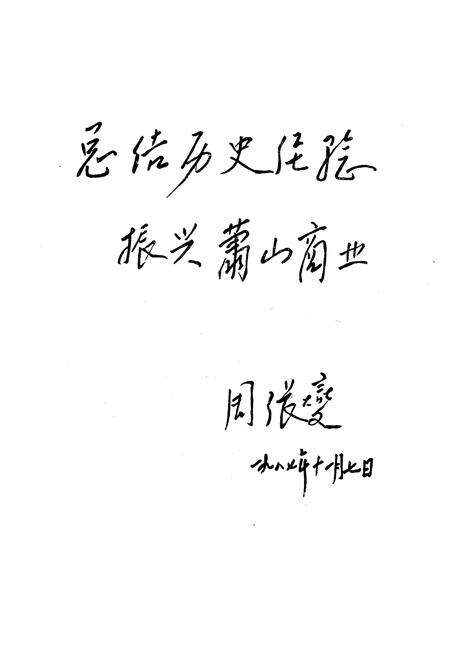 总结历史经验
振兴萧山商业
周张燮
一九八七年十一月七日